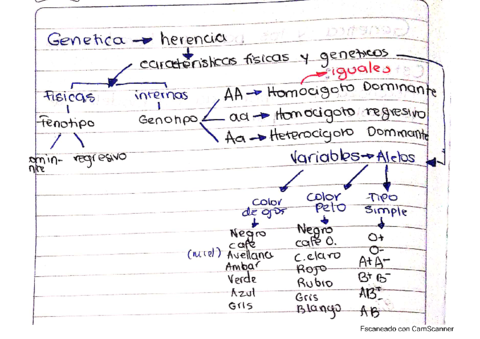 Genetica → herencia
caracteristicas fisicas y geneticas
iguales
fisicas
internas
AA → Homocigoto Dominante
Fenotipo
Genotipo
aa → Homocigoto regresivo
Aa → Heterocigoto Dominante
dominante
regresivo
Variables → Alelos
Color de ojos
Color Pelo
Tipo Simple
Negro
café
(miel) Avellana
Ambar
Verde
Azul
Gris
Negro
café O.
C.claro
Rojo
Rubio
Gris
Blanco
O+
O-
A+ A-
B+ B-
AB
Escaneado con CamScanner